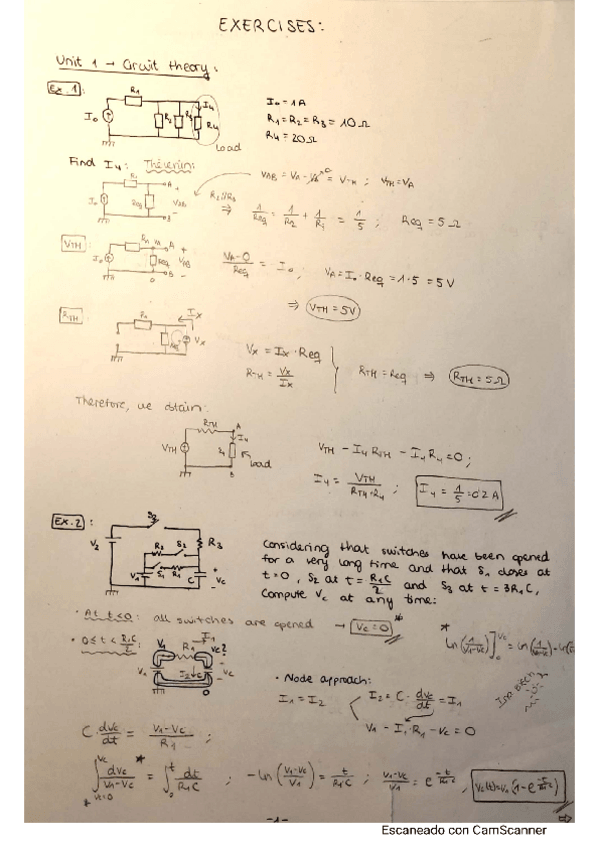 EXERCISES:
Unit 1 → Circuit theory:
Ex. 1:
R1
I4
I0
R2
R3
R4
Load
I0 = 1A
R1 = R2 = R3 = 10Ω
R4 = 20Ω
Find I4: Thévenin:
VAB = VA - VB = VTH ; VTH = VA
R2//R3 ⇒ 1/Req = 1/R2 + 1/R3 = 1/5 ; Req = 5Ω
VTH:
(VA-0)/Req = I0 ; VA = I0·Req = 1·5 = 5V
⇒ VTH = 5V
RTH:
Vx = Ix·Req
RTH = Vx/Ix
RTH = Req ⇒ RTH = 5Ω
Therefore, we obtain:
RTH
A
I4
VTH
Load
B
VTH - I4 RTH - I4 R4 = 0 ;
I4 = VTH/(RTH+R4) ; I4 = 1/5 = 0'2 A
Ex. 2:
S3
V2
R3
R2
S2
V1
S1
R1
C
Vc
Considering that switches have been opened
for a very long time and that S1 closes at
t=0, S2 at t = R1C/2 and S3 at t = 3R1C,
Compute Vc at any time:
· At t≤0: all switches are opened → Vc = 0
· 0≤t<R1C/2:
· Node approach:
I1 = I2
I2 = C·dVc/dt = I1
V1 - I1·R1 - Vc = 0
C·dVc/dt = (V1-Vc)/R1 ;
∫ dVc/(V1-Vc) = ∫ dt/(R1C) ; -ln((V1-Vc)/V1) = t/(R1C) ; (V1-Vc)/V1 = e^(-t/(R1C))
-1-
Escaneado con CamScanner